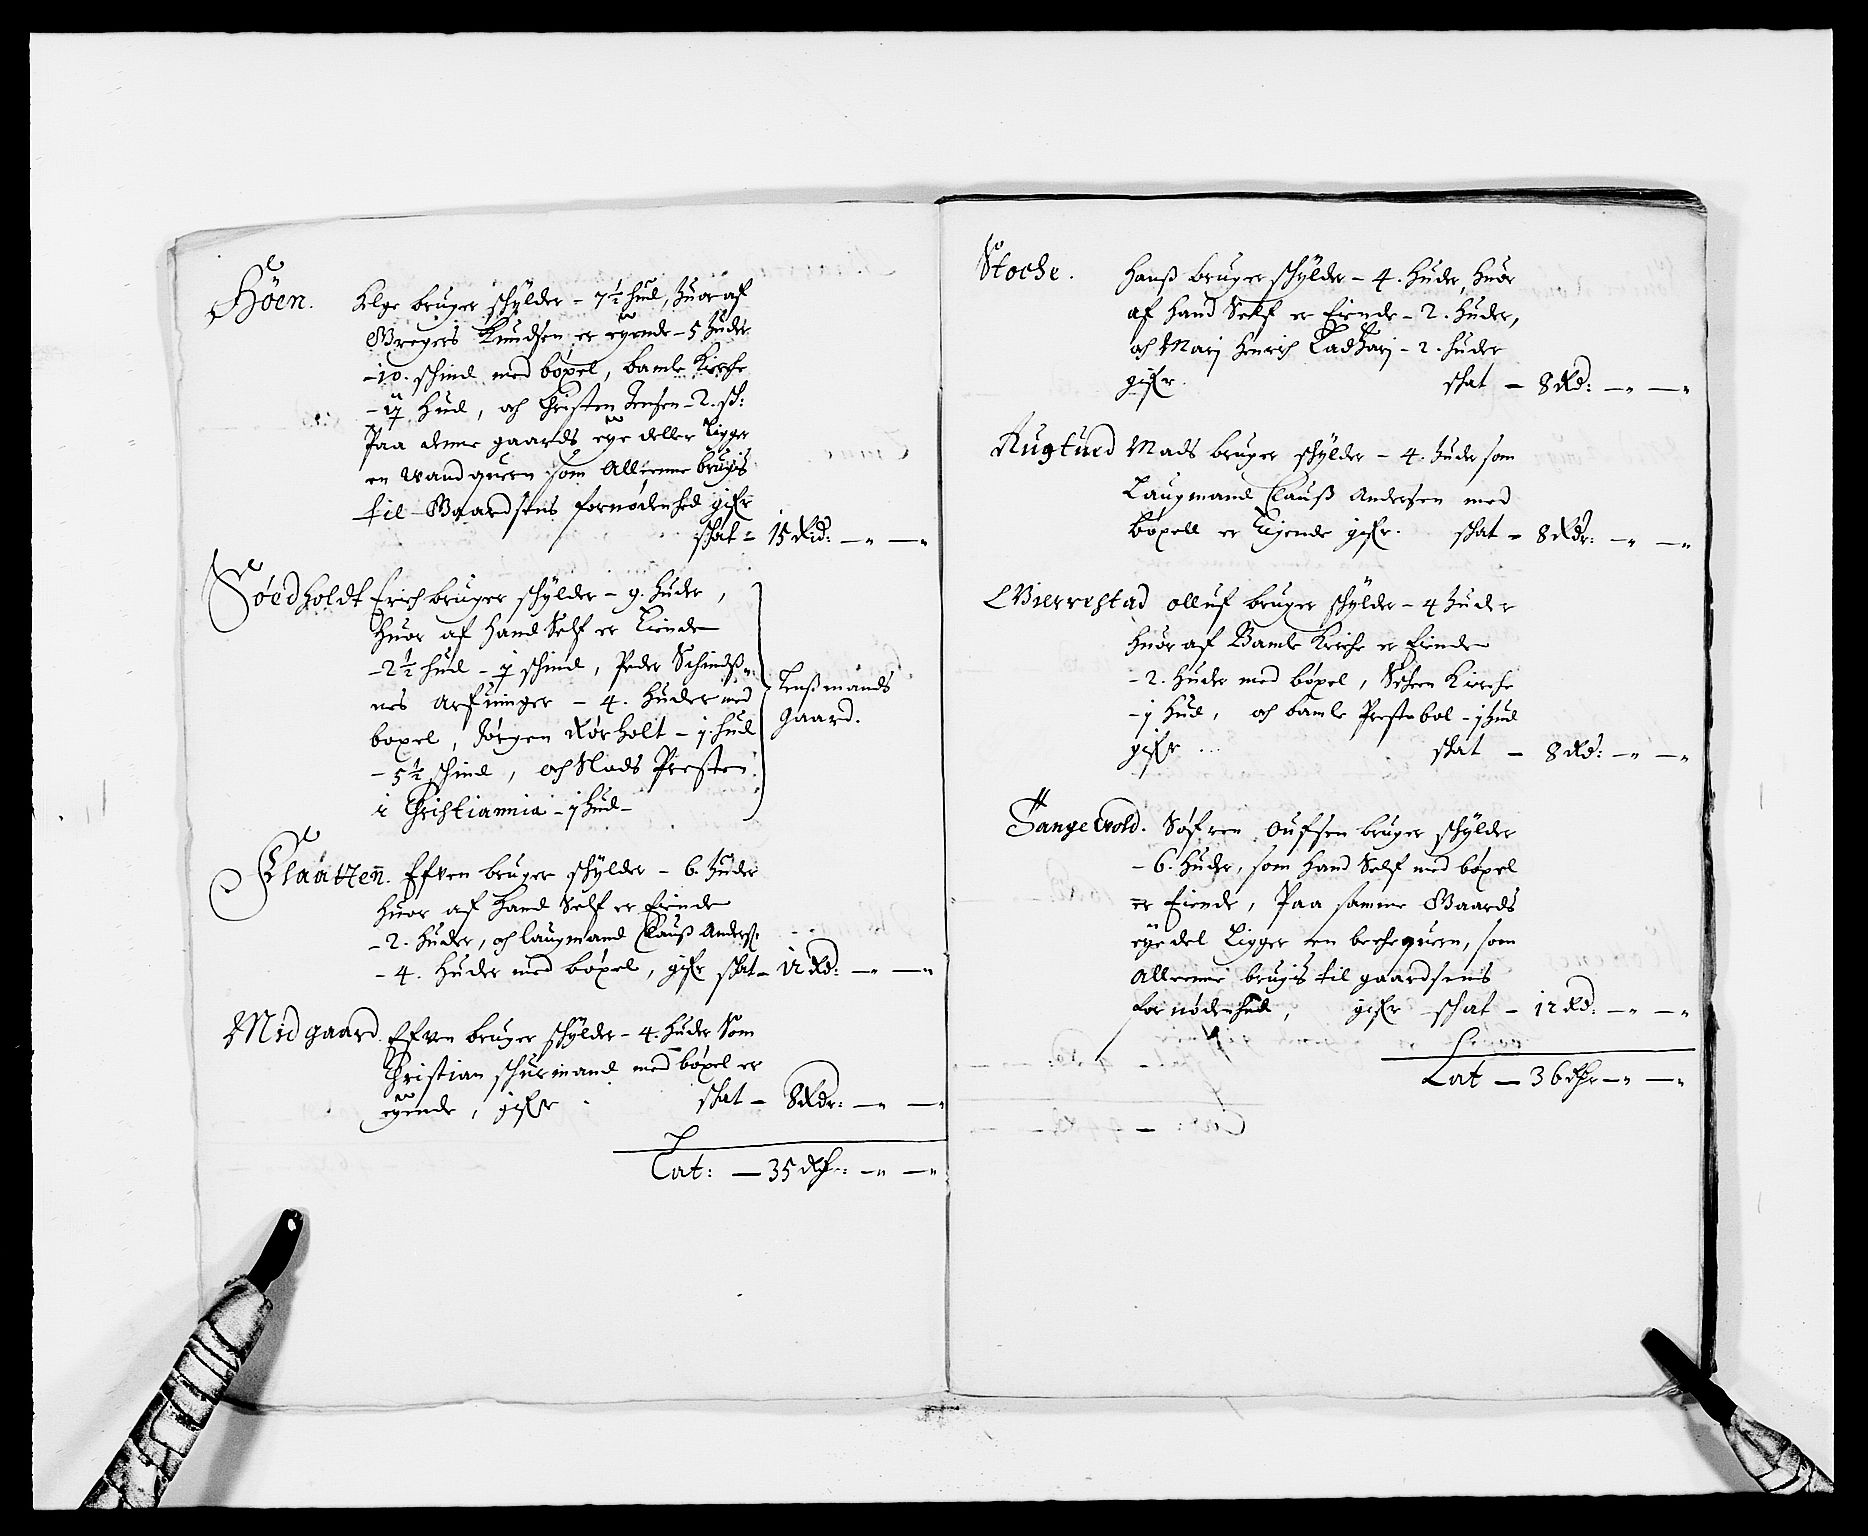 Höen. Helge bruger schylder - 7½ hud, huor af
Gregers Knudsen er eyende - 5 huder
- 10. schind med böxel, bamle Kirche
hud, och Christen Jensen - 2. sch:
Paa denne gaards eye deeller Ligger
en Vandquern som Alleenne brugis
til Gaardsens fornødenhed gifr
schat - 15 Rd: — " — "
Söedholdt Erich bruger schylder - 9. huder,
huor af hand Self er Eiende
- 2½ hud - schind, Peder
nes Arfuinger - 4. huder med
böxel, Jörgen Rörholt - j. hud
- 5½ schind, och Mads Presten
i Christiannia - j hud -
Lenßmands
Gaard.
Plaatten. Efven bruger schylder - 6. huder
huor af hand Self er Eiende
- 2. huder, och laugmand Clauß Anders:
- 4. huder med böxel, gifr schat - 12 Rd: — " — "
Midgaard. Efven bruger schylder - 4. huder Som
Christian Schurmand med böxel er
eyende, gifr schat - 8 Rdr: — " — "
Lat: — 35 Rdr: — " — "
Stoche. Hanß bruger schylder - 4. huder, huor
af hand Self er Eiende - 2. huder,
och Marj Henrich - 2. huder
gifr. schat - 8 Rd: — " — "
Rugtued Mads bruger schylder - 4. huder som
Laugmand Clauß Andersen med
böxell er Eijende gifr. schat - 8 Rdr: — " — "
Vierrestad olluf bruger schylder - 4 huder
huor af Bamle Kirche er Eiende
- 2. huder med böxel, Scheen Kirche
- j hud, och bamle Prestebol - j hud
gifr ... schat - 8 Rd: — " — "
Tangevold. Söfren Oufsen bruger schylder
- 6. huder, som hand Self med böxel
er Eiende, Paa samme Gaards
eye del Ligger en bechequern, som
Alleenne brugis til gaardsens
fornødenhed, gifr schat - 12 Rd: — " — "
Lat — 36 Rdr — " — "